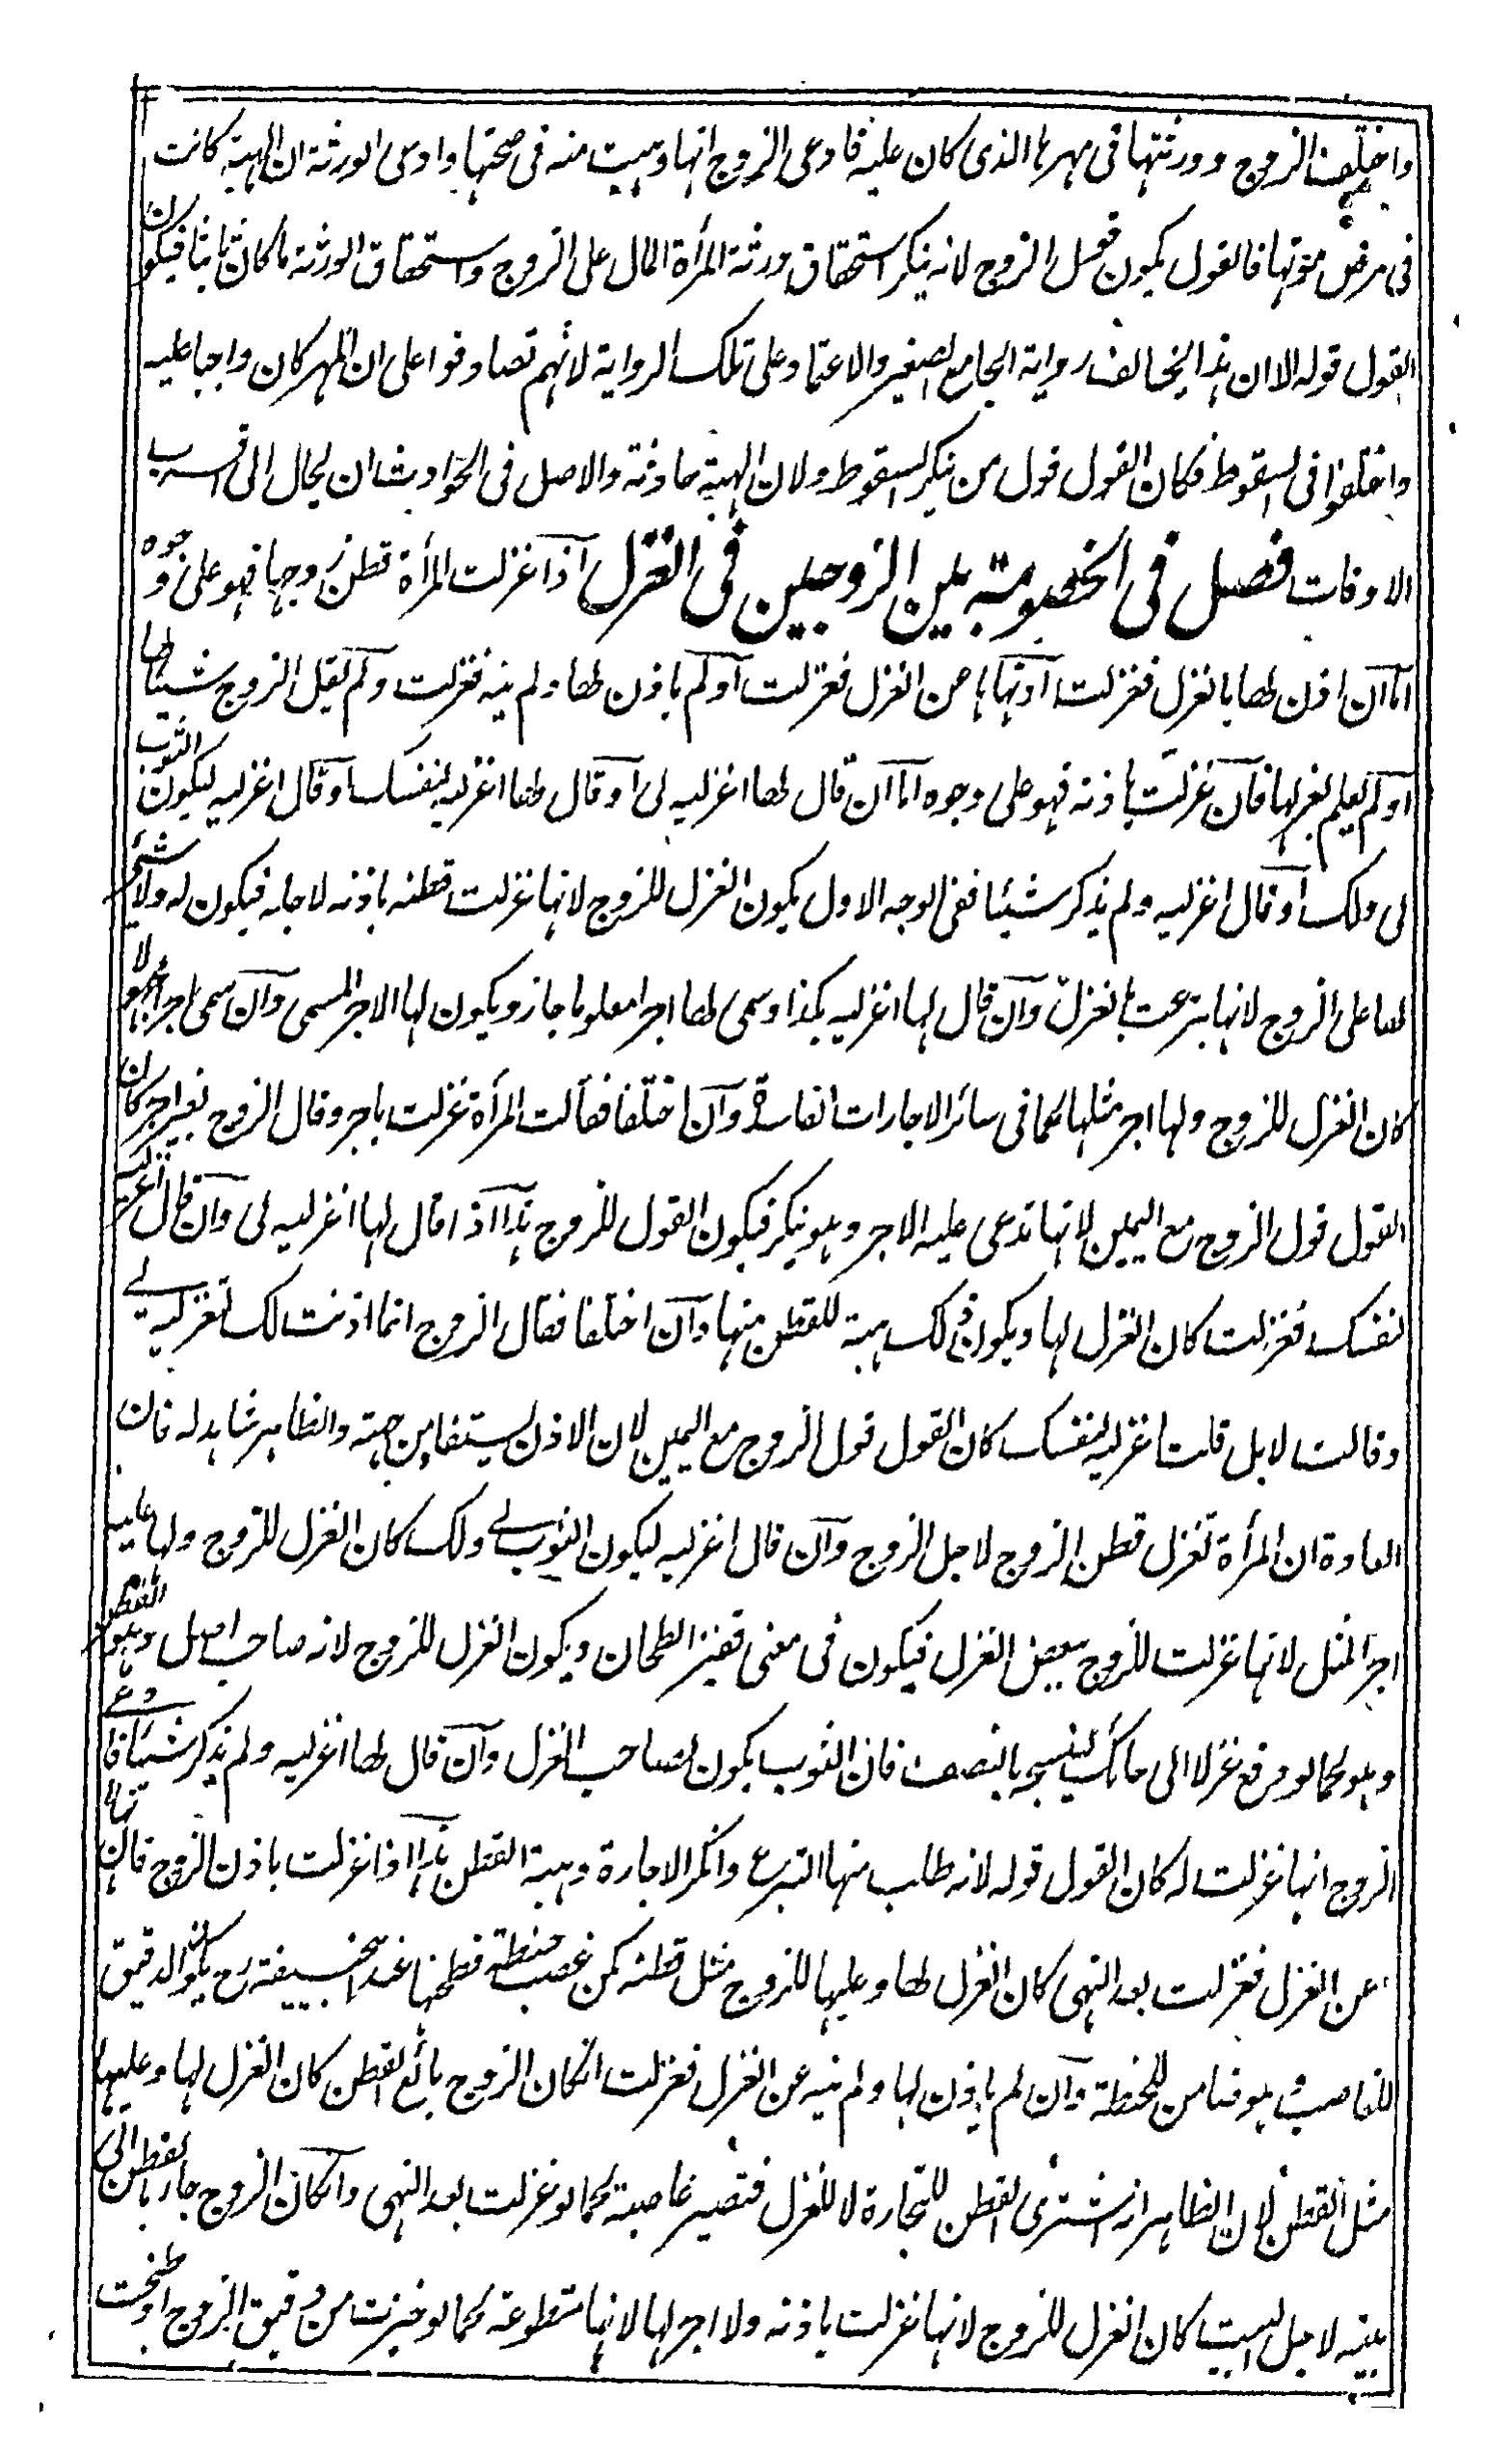 واختلف الزوج وورثتها فى مهرها الذى كان عليه فادعى الزوج انها وهبت منه فى صحتها وادعى الورثة ان الهبة كانت
فى مرض موتها فالقول يكون قول الزوج لانه ينكر استحقاق ورثة المرأة المال على الزوج واستحقاق الورثة ما كان ثابتا فيكون
القول قوله الا ان هذا يخالف رواية الجامع الصغير والاعتماد على تلك الرواية لانهم تصادقوا على ان المهر كان واجبا عليه
واختلفوا فى السقوط فكان القول قول من ينكر السقوط ولان الهبة حادثة والاصل فى الحوادث ان يحال الى اقرب
الاوقات فصل فى الخصومة بين الزوجين فى الغزل اذا غزلت المرأة قطن زوجها فهو على وجوه
اما ان اذن لها بالغزل فغزلت او نهاها عن الغزل فغزلت او لم ياذن لها ولم ينه فغزلت ولم يقل الزوج شيئا لها
او لم يعلم بغزلها فان غزلت باذنه فهو على وجوه اما ان قال لها اغزليه لى او قال لها اغزليه لنفسك او قال اغزليه ليكون الثوب
لى ولك او قال اغزليه ولم يذكر شيئا ففى الوجه الاول يكون الغزل للزوج لانها غزلت قطنه باذنه لاجله فيكون له ولا شئ
لها على الزوج لانها تبرعت بالغزل وان قال لها اغزليه بكذا وسمى لها اجرا معلوما جاز ويكون لها الاجر المسمى وان سمى اجرا مجهولا
كان الغزل للزوج ولها اجر مثلها كما فى سائر الاجارات الفاسدة وان اختلفا فقالت المرأة غزلت باجر وقال الزوج بغير اجر كان
القول قول الزوج مع اليمين لانها تدعى عليه الاجر وهو ينكر فيكون القول للزوج هذا اذا قال لها اغزليه لى وان قال اغزليه
لنفسك فغزلت كان الغزل لها ويكون ذلك هبة للقطن منها وان اختلفا فقال الزوج انما اذنت لك لتغزليه لى
وقالت لا بل قلت اغزليه لنفسك كان القول قول الزوج مع اليمين لان الاذن يستفاد من جهته والظاهر شاهد له فان
العادة ان المرأة تغزل قطن الزوج لاجل الزوج وان قال اغزليه ليكون الثوب لى ولك كان الغزل للزوج ولها عليه
اجر المثل لانها غزلت للزوج ببعض الغزل فيكون فى معنى قفيز الطحان ويكون الغزل للزوج لانه صاحب اصل وهو القطن
وهو كما لو دفع غزلا الى حائك لينسجه بالنصف فان الثوب يكون لصاحب الغزل وان قال لها اغزليه ولم يذكر شيئا فادعى
الزوج انها غزلت له كان القول قوله لانه طلب منها التبرع وانكر الاجارة وهبة القطن هذا اذا غزلت باذن الزوج فان نهاها
عن الغزل فغزلت بعد النهى كان الغزل لها وعليها للزوج مثل قطنه كمن غصب حنطة فطحنها عند ابى حنيفة رح يكون الدقيق
للغاصب وهو ضامن للحنطة وان لم ياذن لها ولم ينه عن الغزل فغزلت انكان الزوج بائع القطن كان الغزل لها وعليها
مثل القطن لان الظاهر انه اشترى القطن للتجارة لا للغزل فتصير غاصبة كما لو غزلت بعد النهى وانكان الزوج جاء بالقطن الى
بيته لاجل البيت كان الغزل للزوج لانها غزلت باذنه ولا اجر لها لانها متطوعة كما لو خبزت من دقيق الزوج او طبخت